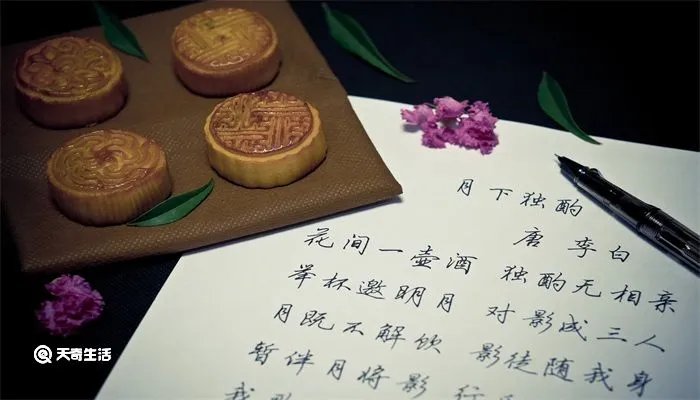 月下独酌
唐 李白
花间一壶酒 独酌无相亲
举杯邀明月 对影成三人
月既不解饮 影徒随我身
暂伴月将影 行
我
天奇生活